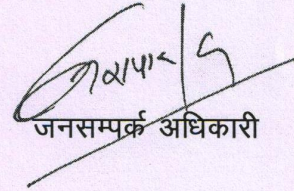 जनसम्पर्क अधिकारी